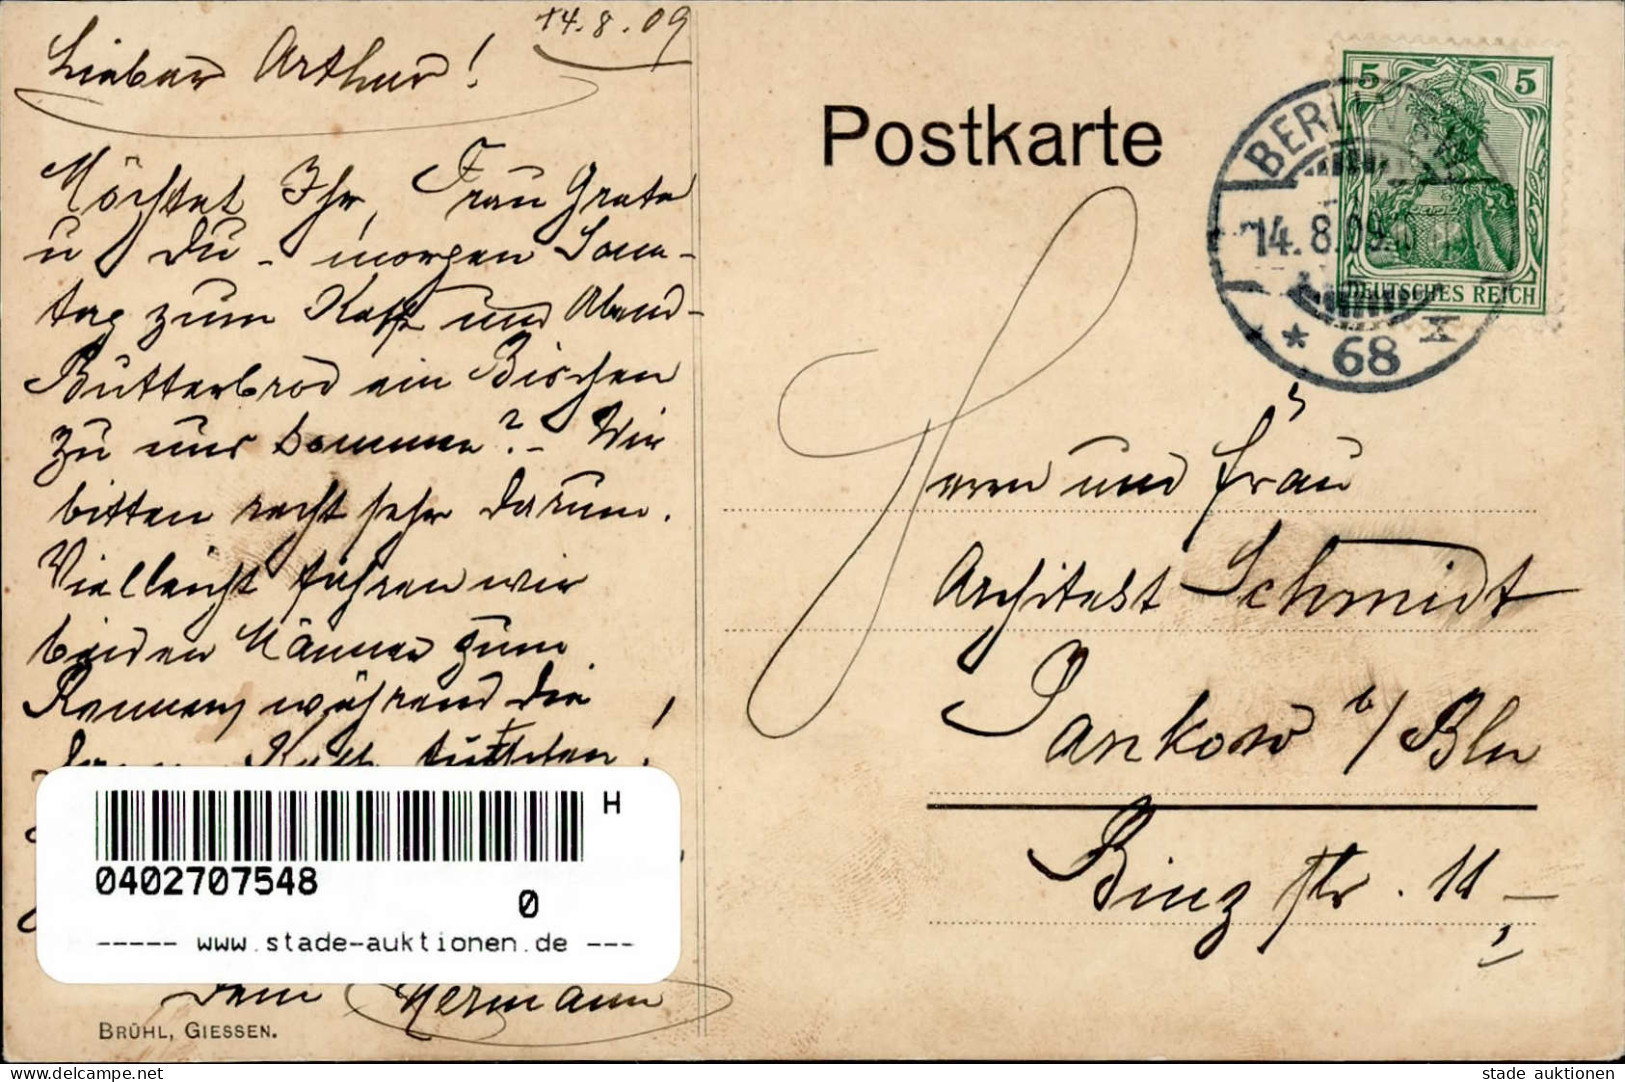 14.8.09
Lieber Arthur!
Möchtet Ihr, Frau Grete
u Du - morgen Sonn-
tag zum Kaffe und Abend-
Butterbrod ein Bischen
zu uns kommen? - Wir
bitten recht sehr darum.
Vielleicht fahren wir
beiden Männer zum
Rennen, während die
Kaffe
Dein Hermann
BRÜHL, GIESSEN.
Postkarte
5 5
DEUTSCHES REICH
BERLIN
14.8.09
* * 68
Herrn und Frau
Architekt Schmidt
Pankow b/ Bln
Binz str. 11
H
0402707548
0
----- www.stade-auktionen.de ---
delcampe.net
stade auktionen